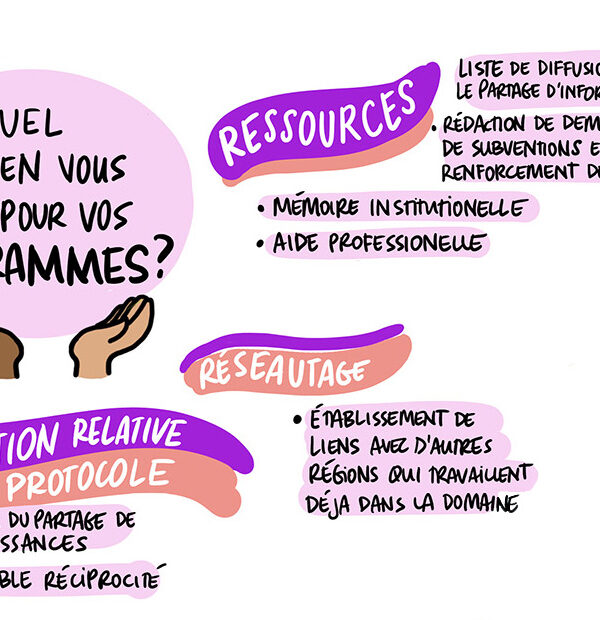 UEL
EN VOUS
POUR VOS
RAMMES?
RESSOURCES
LISTE DE DIFFUSIO
LE PARTAGE D'INFOR
• RÉDACTION DE DEM
DE SUBVENTIONS E
RENFORCEMENT D
• MÉMOIRE INSTITUTIONELLE
• AIDE PROFESSIONELLE
RÉSEAUTAGE
• ÉTABLISSEMENT DE
LIENS AVEC D'AUTRES
RÉGIONS QUI TRAVAILLENT
DÉJA DANS LA DOMAINE
TION RELATIVE
PROTOCOLE
DU PARTAGE DE
SSANCES
BLE RÉCIPROCITÉ